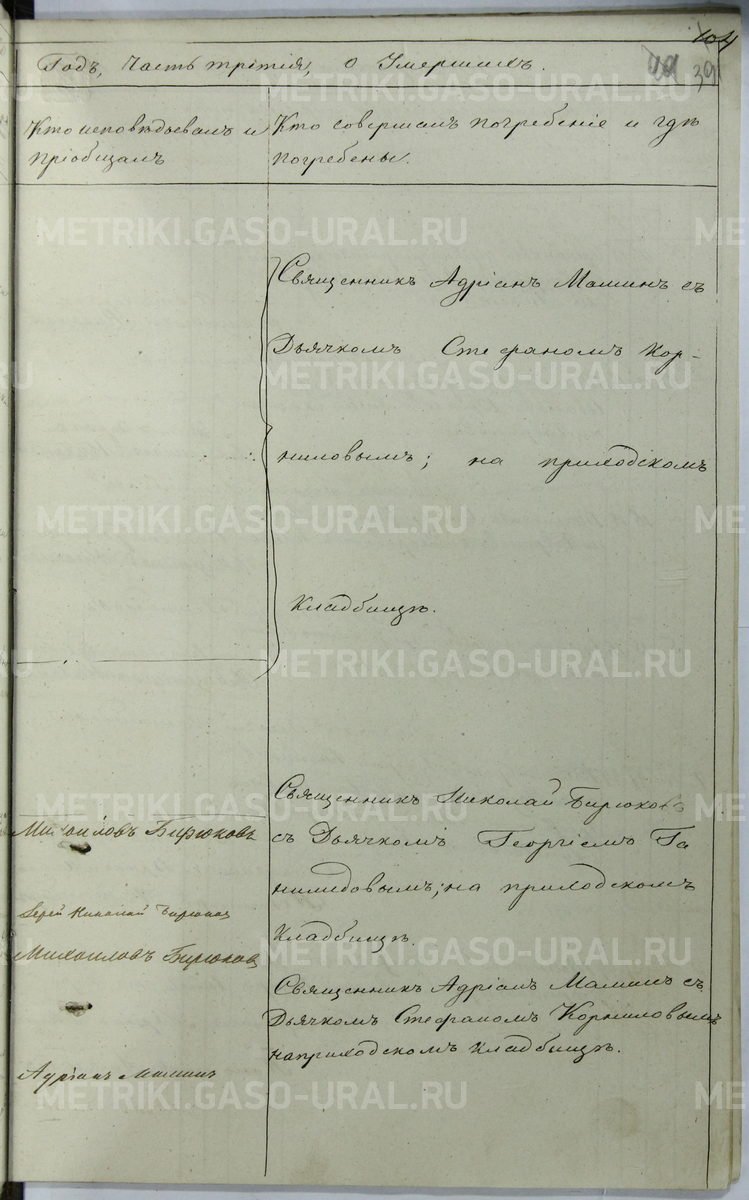 104
39
Годъ, часть третія, о Умершихъ.
Кто исповѣдывалъ и
пріобщалъ
Кто совершалъ погребеніе и гдѣ
погребены.
Священникъ Адріанъ Маминъ съ
Дьячкомъ Стефаномъ Кор-
ниловымъ; на приходскомъ
кладбищѣ.
Священникъ Николай Бирюковъ
съ Дьячкомъ Георгіемъ
на приходскомъ
Кладбищѣ.
Священникъ Адріанъ Маминъ съ
Дьячкомъ Стефаномъ Корниловымъ
на приходскомъ кладбищѣ.
Михаиловъ Бирюковъ
Іерей Николай Бирюковъ
Михаиловъ Бирюковъ
Адріанъ Маминъ
METRIKI.GASO-URAL.RU